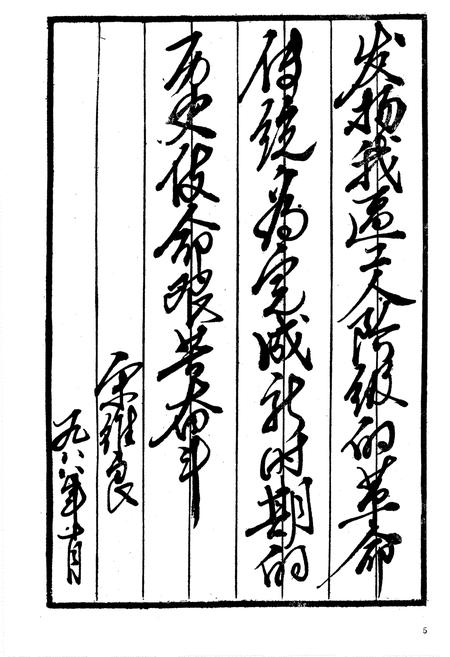 发扬我区工人阶级的革命
传统，为完成新时期的
历史使命艰苦奋斗
宋维良
一九八八年十月
5